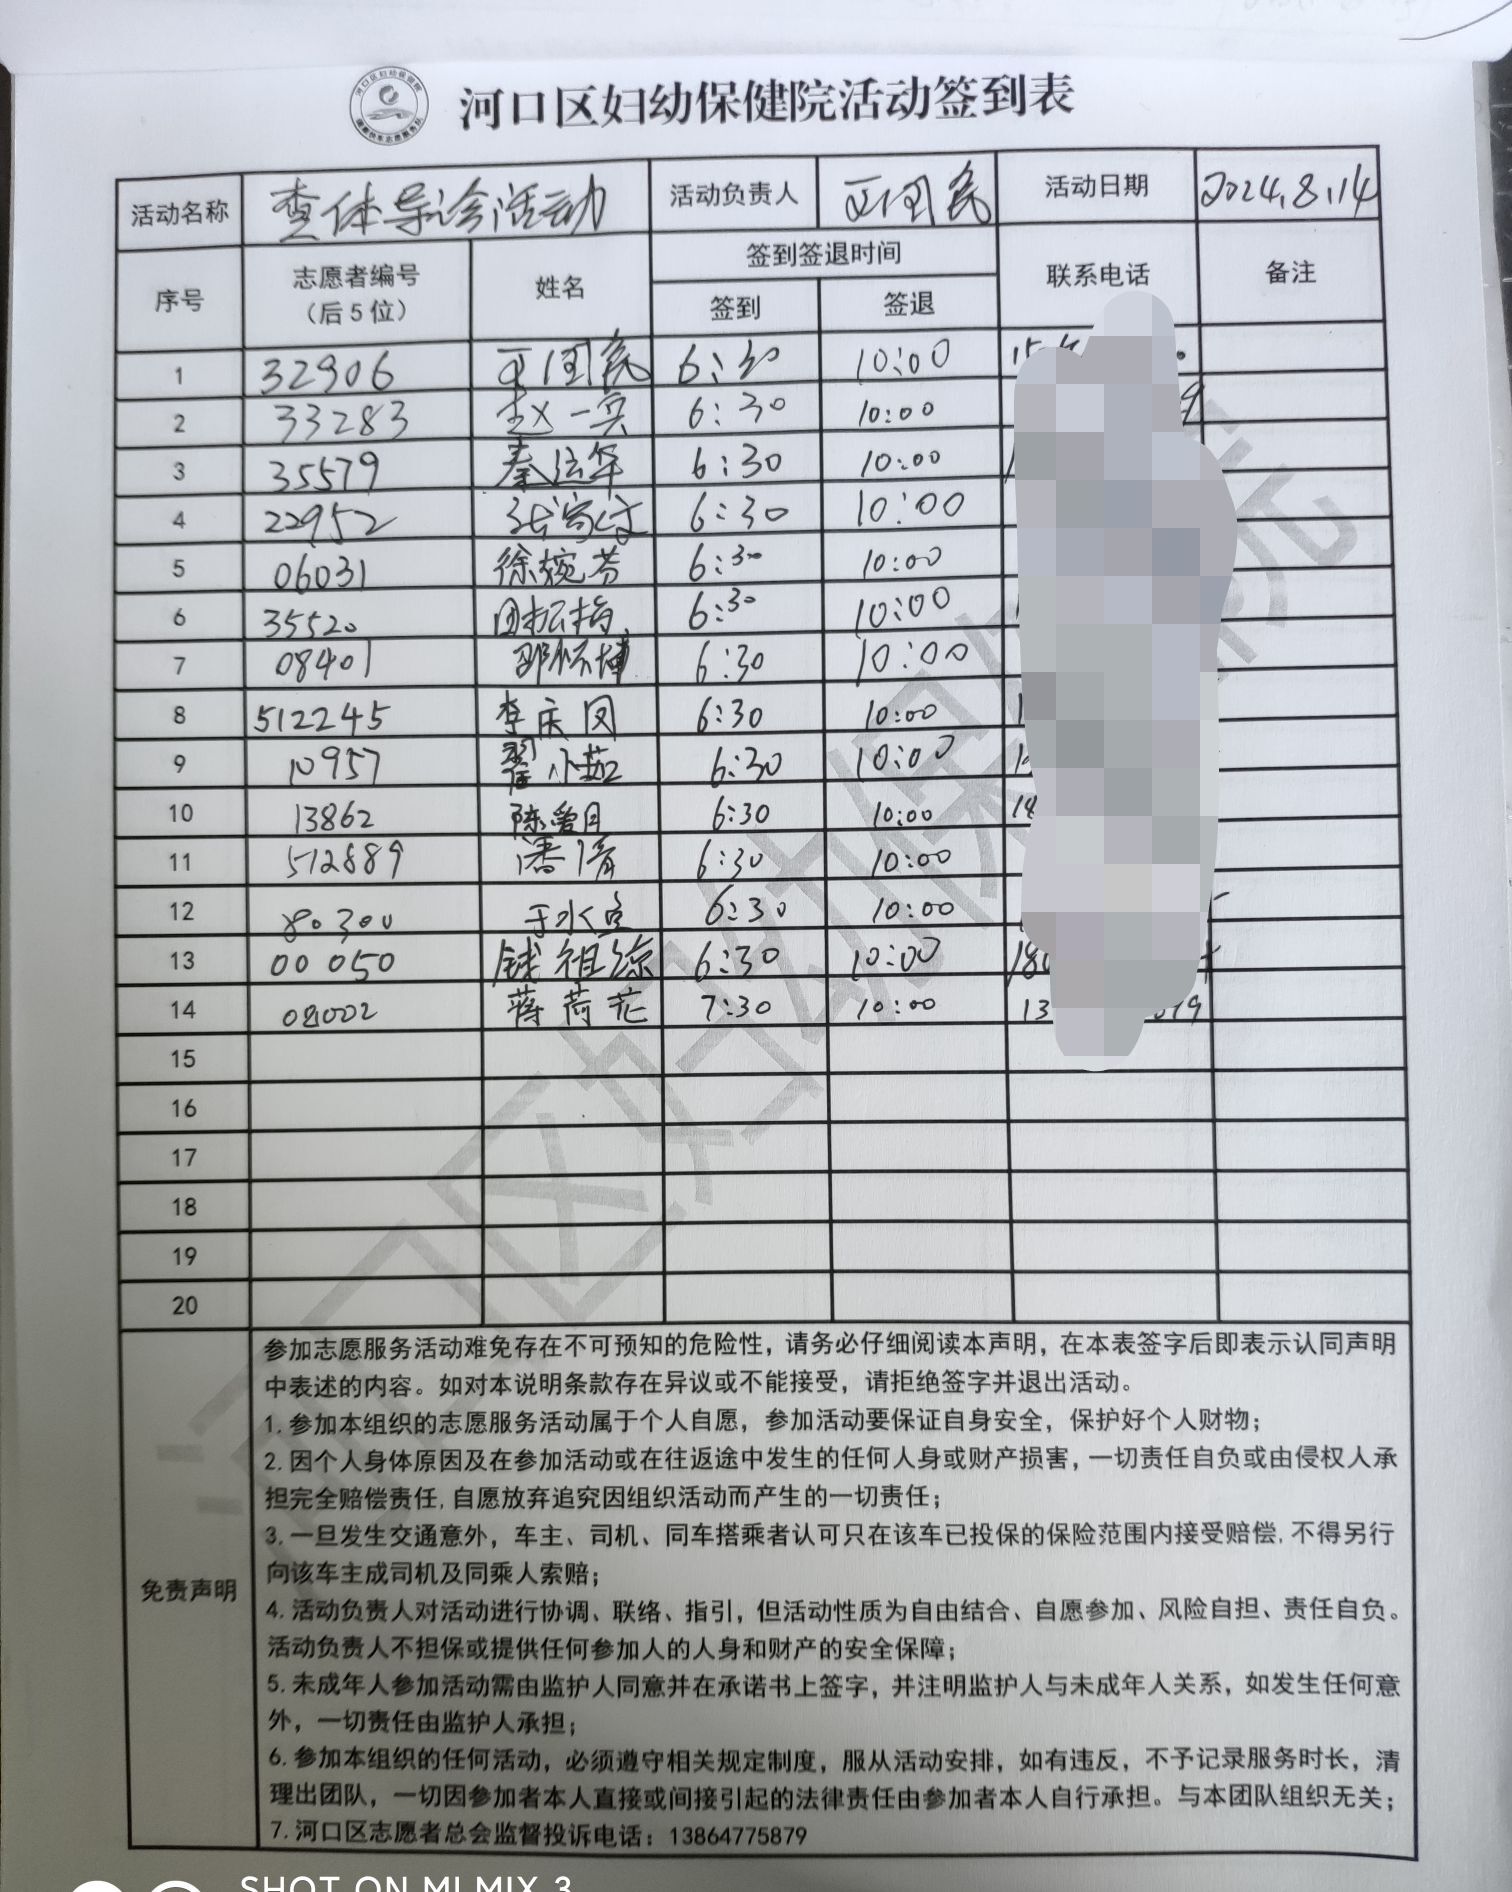 河口区妇幼保健院活动签到表
活动名称 查体导诊活动 活动负责人 活动日期 2024.8.14
序号 志愿者编号 (后5位) 姓名 签到签退时间 联系电话 备注
签到 签退
1 32906 6:30 10:00
2 33283 赵一兵 6:30 10:00
3 35579 秦运华 6:30 10:00
4 22952 6:30 10:00
5 06031 徐婉芬 6:30 10:00
6 35520 6:30 10:00
7 08401 6:30 10:00
8 512245 李庆凤 6:30 10:00
9 10957 翟小茹 6:30 10:00
10 13862 陈爱月 6:30 10:00
11 512889 潘倩 6:30 10:00
12 80300 6:30 10:00
13 00050 钱祖琼 6:30 10:00
14 蒋荷花 7:30 10:00
15
16
17
18
19
20
免责声明
参加志愿服务活动难免存在不可预知的危险性，请务必仔细阅读本声明，在本表签字后即表示认同声明
中表述的内容。如对本说明条款存在异议或不能接受，请拒绝签字并退出活动。
1.参加本组织的志愿服务活动属于个人自愿，参加活动要保证自身安全，保护好个人财物；
2.因个人身体原因及在参加活动或在往返途中发生的任何人身或财产损害，一切责任自负或由侵权人承
担完全赔偿责任,自愿放弃追究因组织活动而产生的一切责任；
3.一旦发生交通意外，车主、司机、同车搭乘者认可只在该车已投保的保险范围内接受赔偿,不得另行
向该车主成司机及同乘人索赔；
4.活动负责人对活动进行协调、联络、指引，但活动性质为自由结合、自愿参加、风险自担、责任自负。
活动负责人不担保或提供任何参加人的人身和财产的安全保障；
5.未成年人参加活动需由监护人同意并在承诺书上签字，并注明监护人与未成年人关系，如发生任何意
外，一切责任由监护人承担；
6.参加本组织的任何活动，必须遵守相关规定制度，服从活动安排，如有违反，不予记录服务时长，清
理出团队，一切因参加者本人直接或间接引起的法律责任由参加者本人自行承担。与本团队组织无关；
7.河口区志愿者总会监督投诉电话：13864775879
SHOT ON MI MIX 3